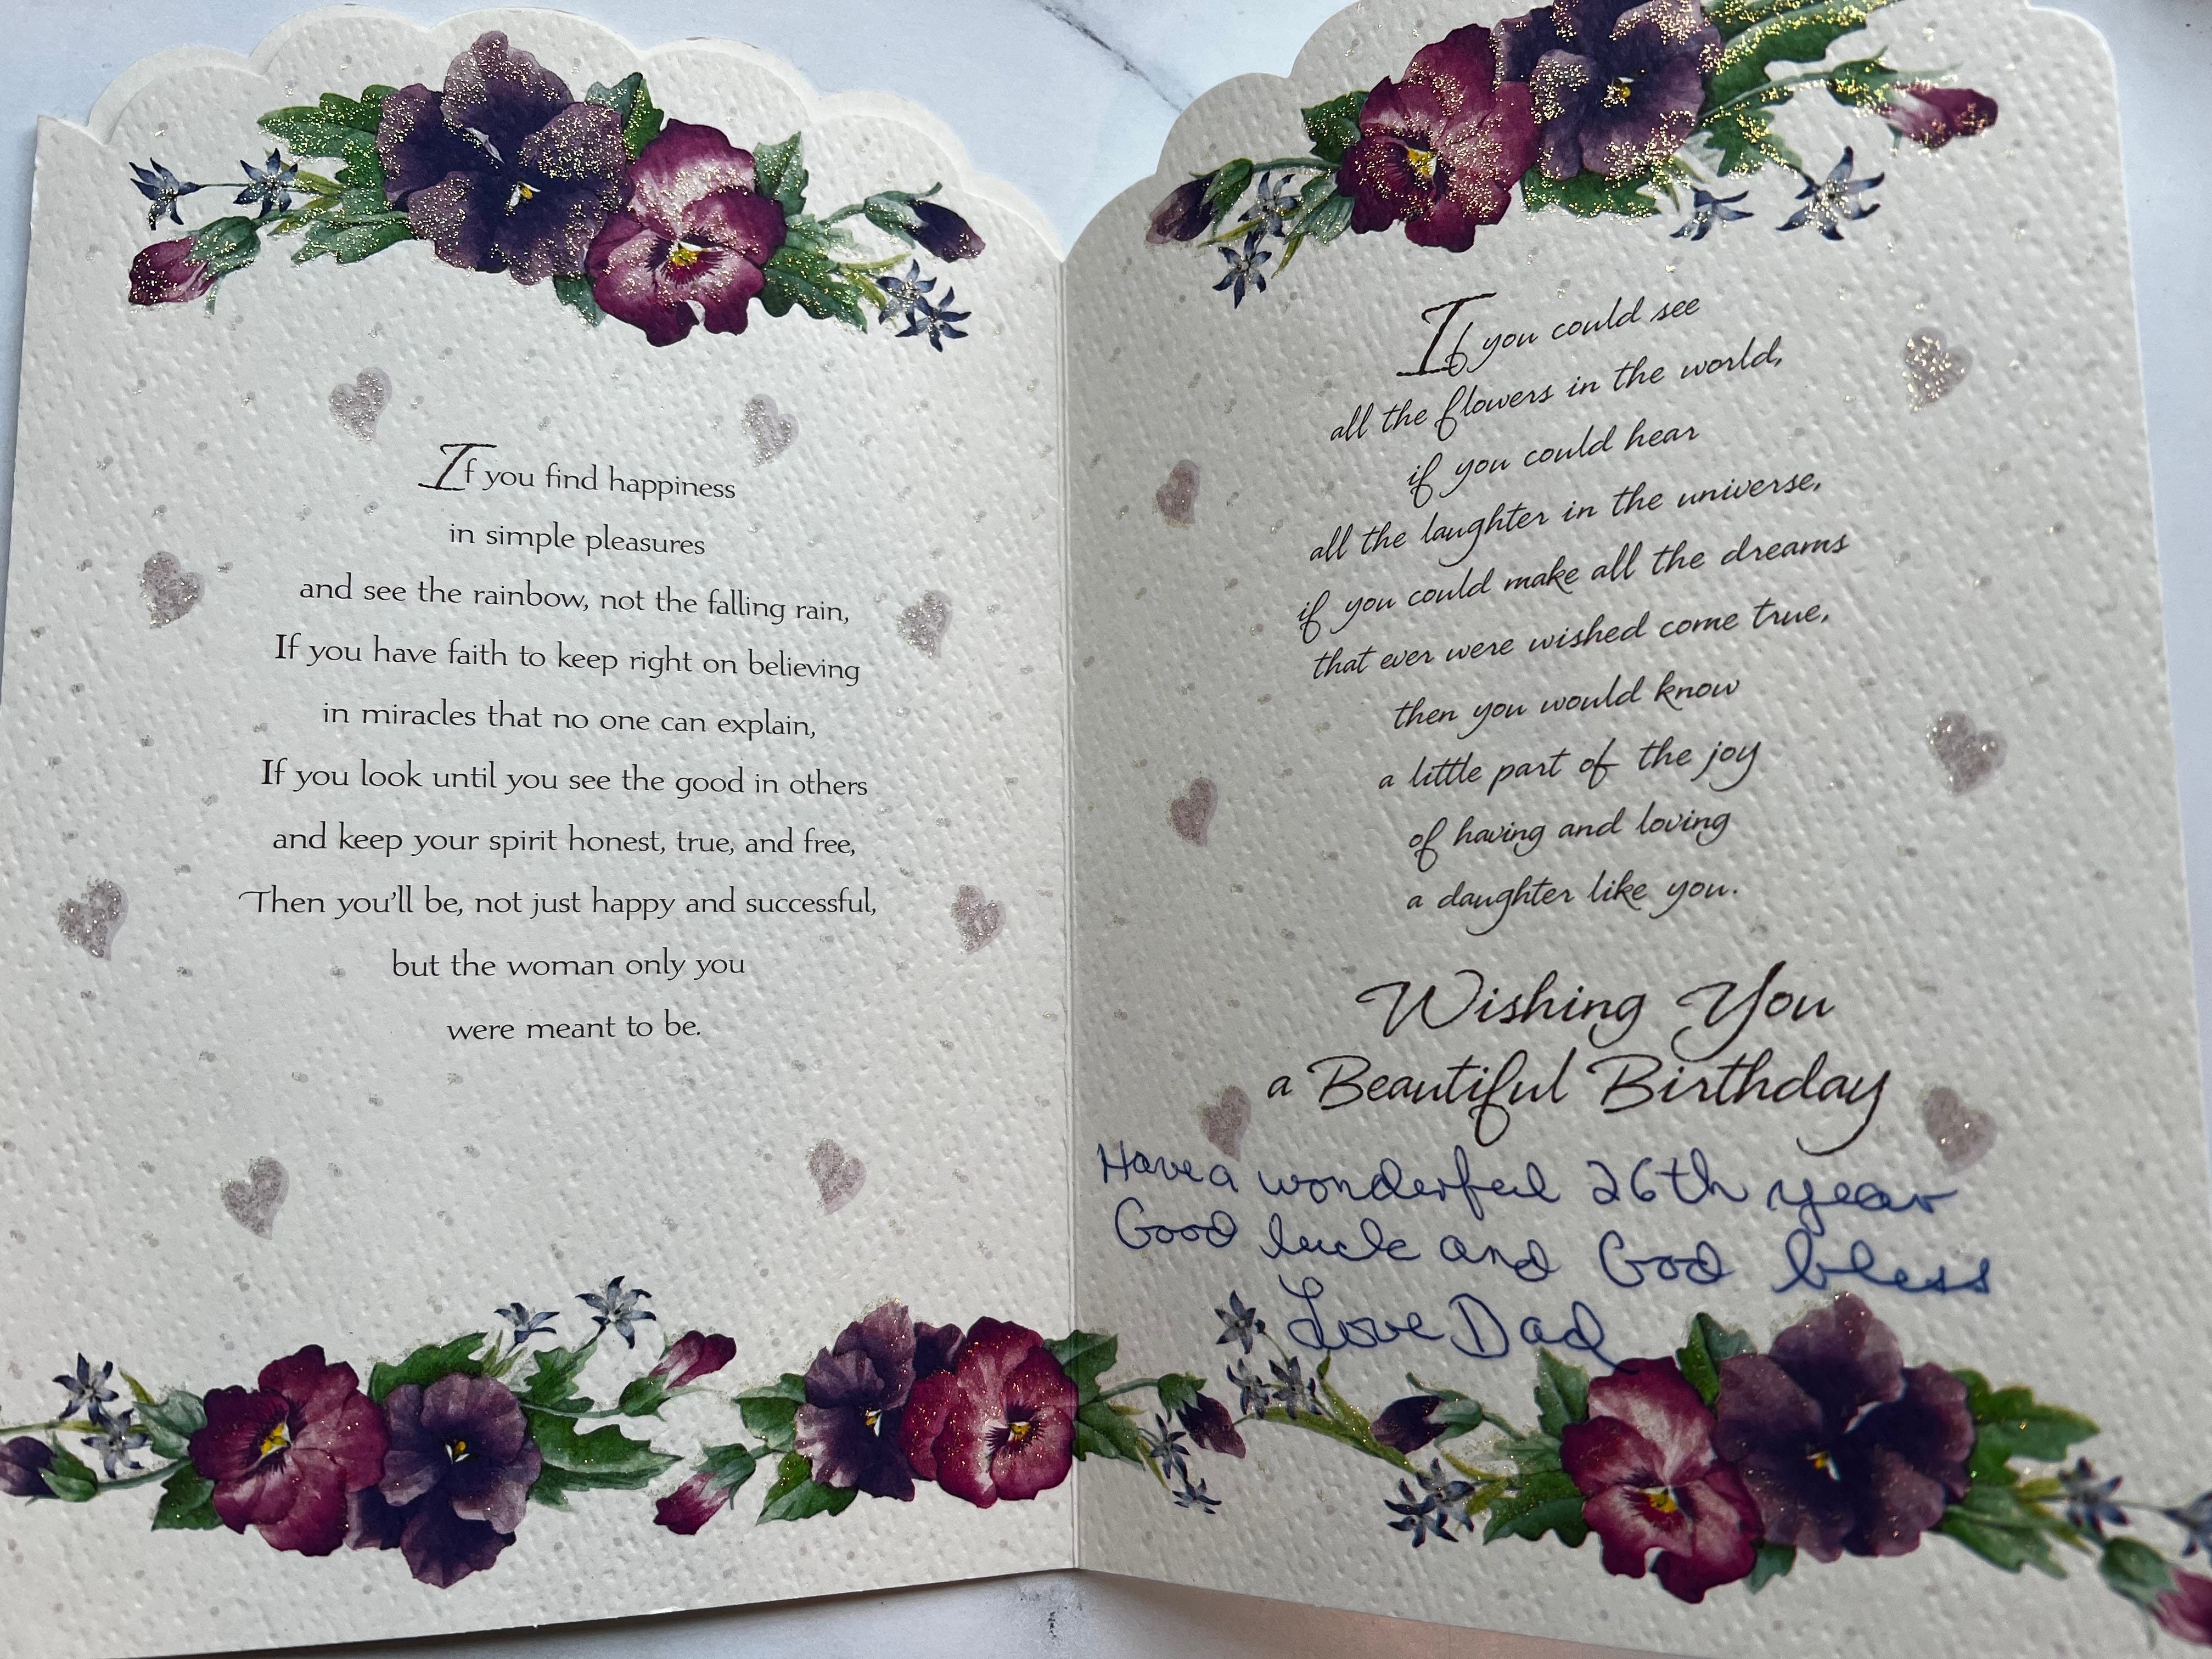 If you find happiness
in simple pleasures
and see the rainbow, not the falling rain,
If you have faith to keep right on believing
in miracles that no one can explain,
If you look until you see the good in others
and keep your spirit honest, true, and free,
Then you'll be, not just happy and successful,
but the woman only you
were meant to be.
If you could see
all the flowers in the world,
if you could hear
all the laughter in the universe,
if you could make all the dreams
that ever were wished come true,
then you would know
a little part of the joy
of having and loving
a daughter like you.
Wishing You
a Beautiful Birthday
Have a wonderful 26th year
Good luck and God bless
Love Dad